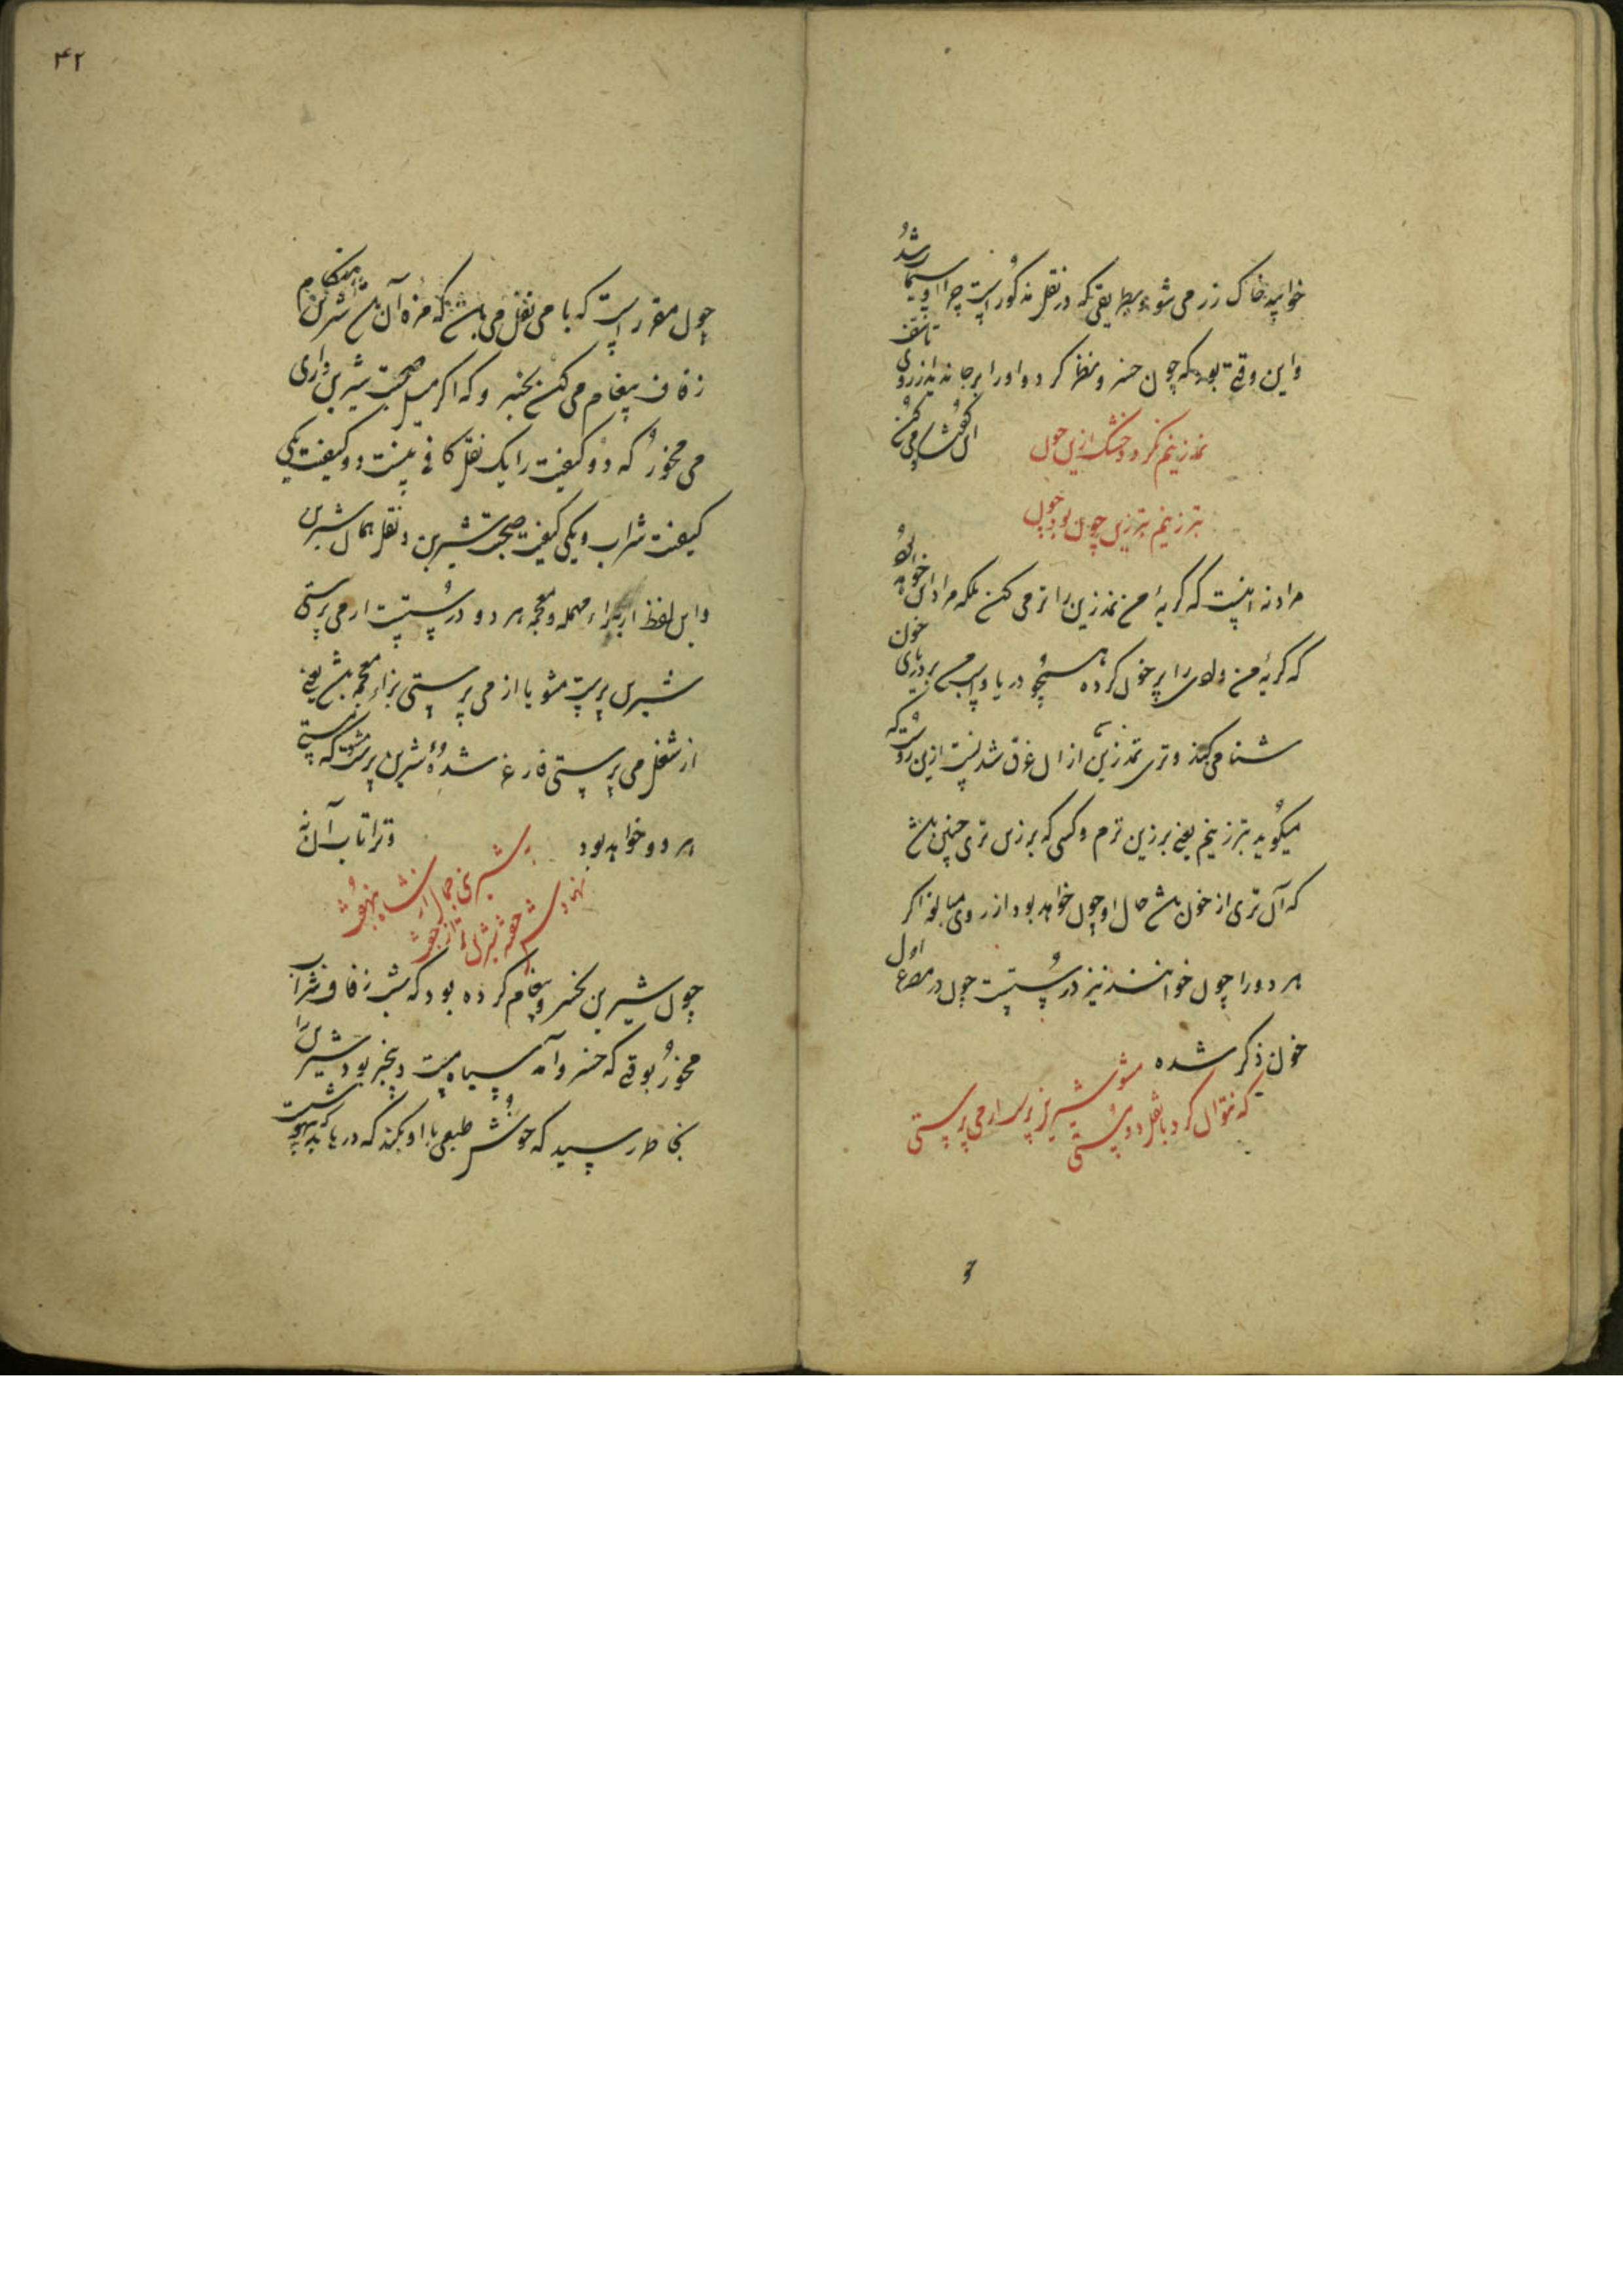 خواهد خاک زر می شود بطریقی که در نقل مذکور است چرا او سیما رشد
و این وقتی بود که چون خسرو نظر کرد و او را بر جا ندید از روی تاسف
نمد زینم نگردد خشک ازین خون
بتر زینم بتر زین چون بود چون
مراد نه اینست که گریهٔ من نمد زین را تر می کند بلکه مراد آن خواهد بود
که گریهٔ من وادی را پر خون کرده همچو دریا و اسب من در دریای خون
شنا می کند و تری نمد زین از آن غرق شدنست ازین روست که
میگوید بتر زینم یعنی بر زین ترم و کسی که بر زین تری چنین باشد
که آن تری از خون باشد حال او چون خواهد بود از روی مبالغه اگر
هر دو را چون خوانند نیز درستست چون در مصرع اول
خون ذکر شده
که نقل آن کرد با نقل دو پستی مشو شیرین پرست ار می پرستی
۴۲
چون مقرر است که با می نقل می باشد که مزه آن باشد شیرین هنگام
زفاف پیغام می کند بخسرو که اگر میل صحبت شیرین داری
می مخور که دو کیفیت را یک نقل کافی نیست دو کیفیت یکی
کیفیت شراب و یکی کیفیت صحبت شیرین و نقل همان شیرین
و این لفظ ار براء مهمله و معجمه هر دو درستست ار می پرستی
شیرین پرست مشو یا از می پرستی بزاء معجمه باشد یعنی
از شغل می پرستی فارغ شدهٔ شیرین پرست مشو که مستی
هر دو خواهد بود و ترا تاب آن نه
چون شیرین بخسرو پیغام کرده بود که شب زفاف شراب
مخور بوقتی که خسرو آمد سیاه مست و بیخبر بود شیرین را
بخاطر رسید که خوش طبعی با او بکند که دریابد که بیهوشست